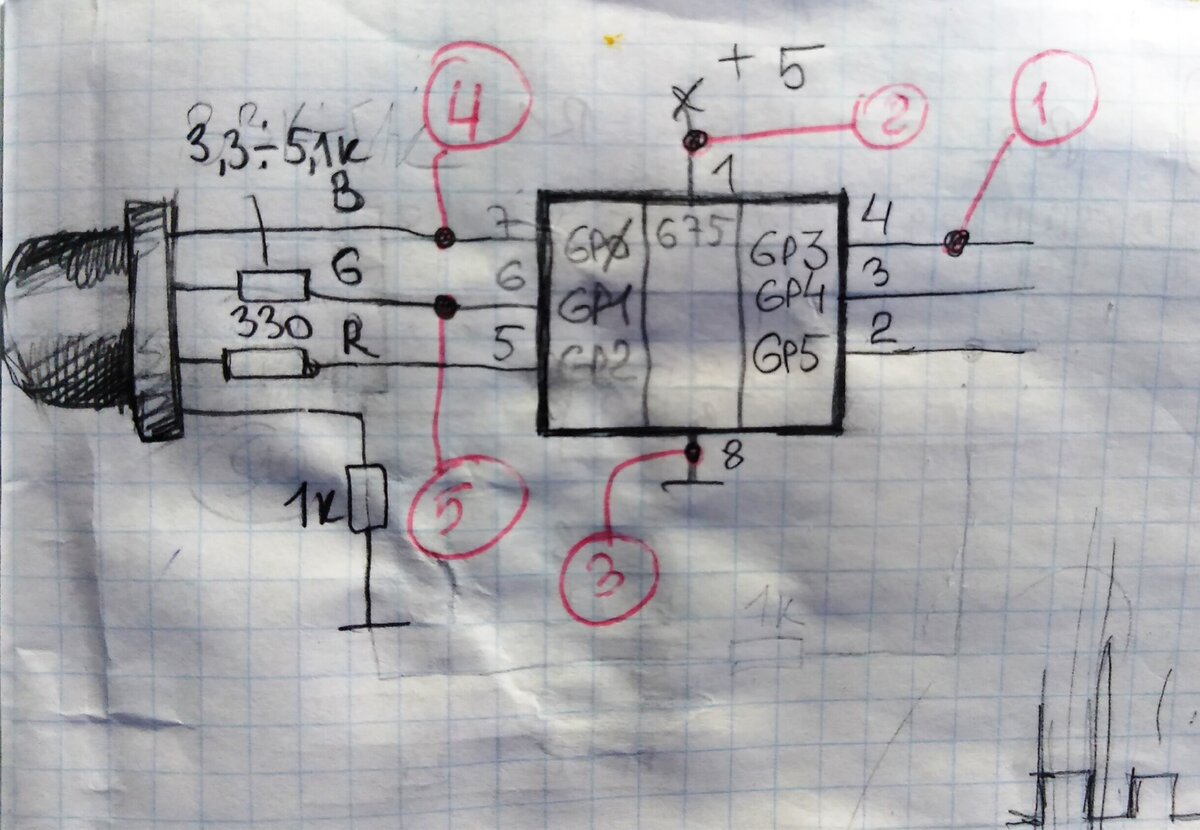 + 5
4
2
1
3,3÷5,1к
B
1
7
GPØ
675
GP3
4
G
6
GP1
GP4
3
330
R
5
GP2
GP5
2
8
1к
5
3
1к